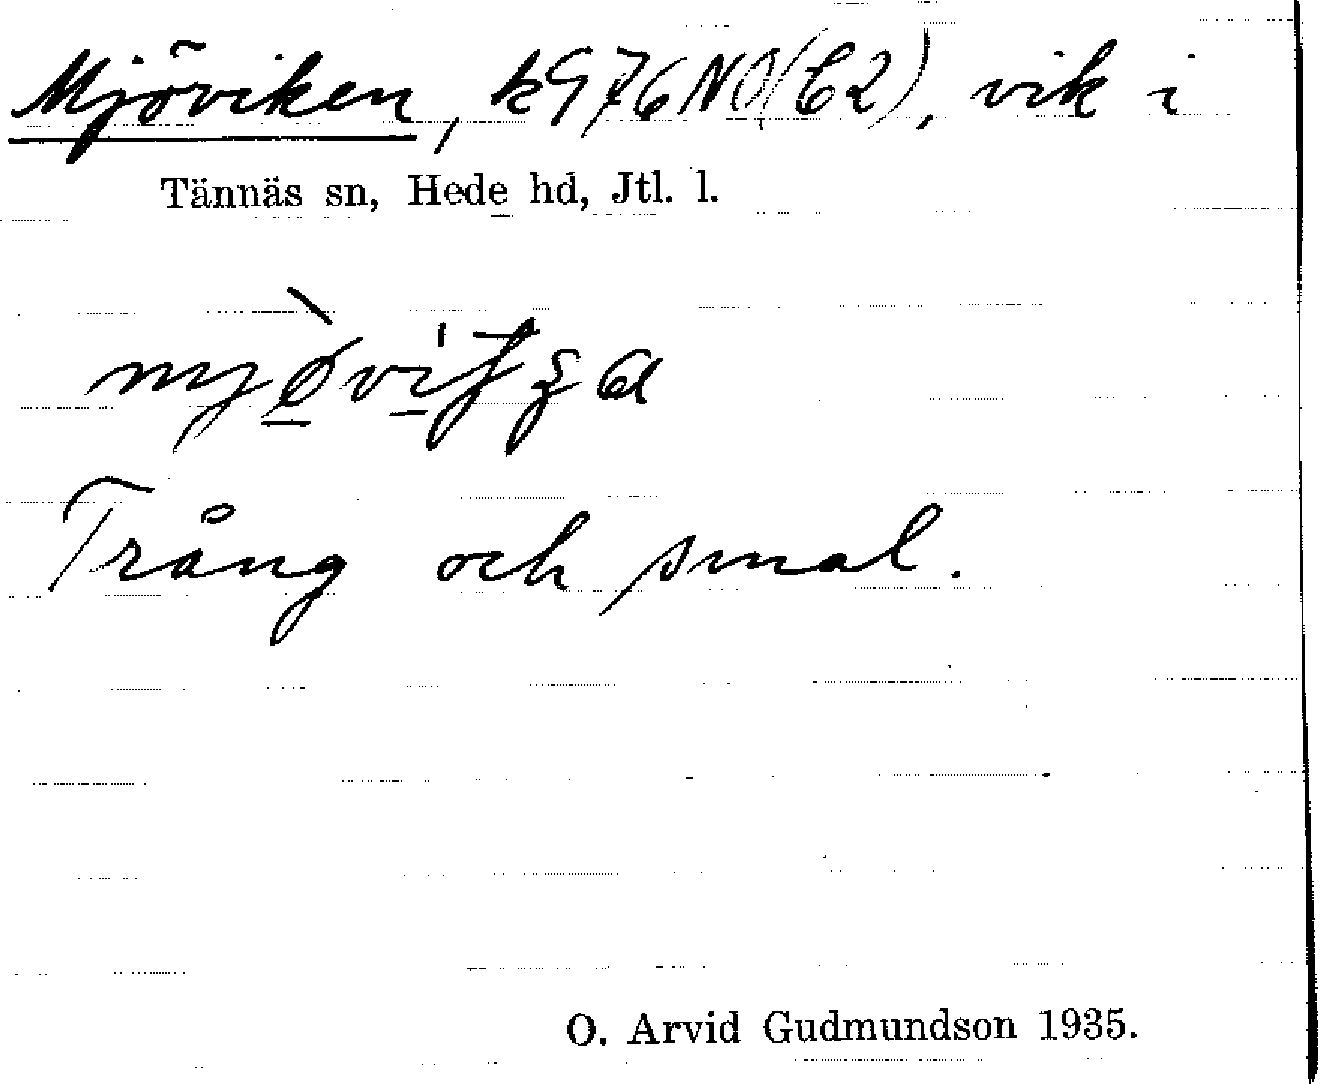 Mjöviken, k976NO(C2), vik i
Tännäs sn, Hede hd, Jtl. l.
Trång och smal.
O. Arvid Gudmundson 1935.